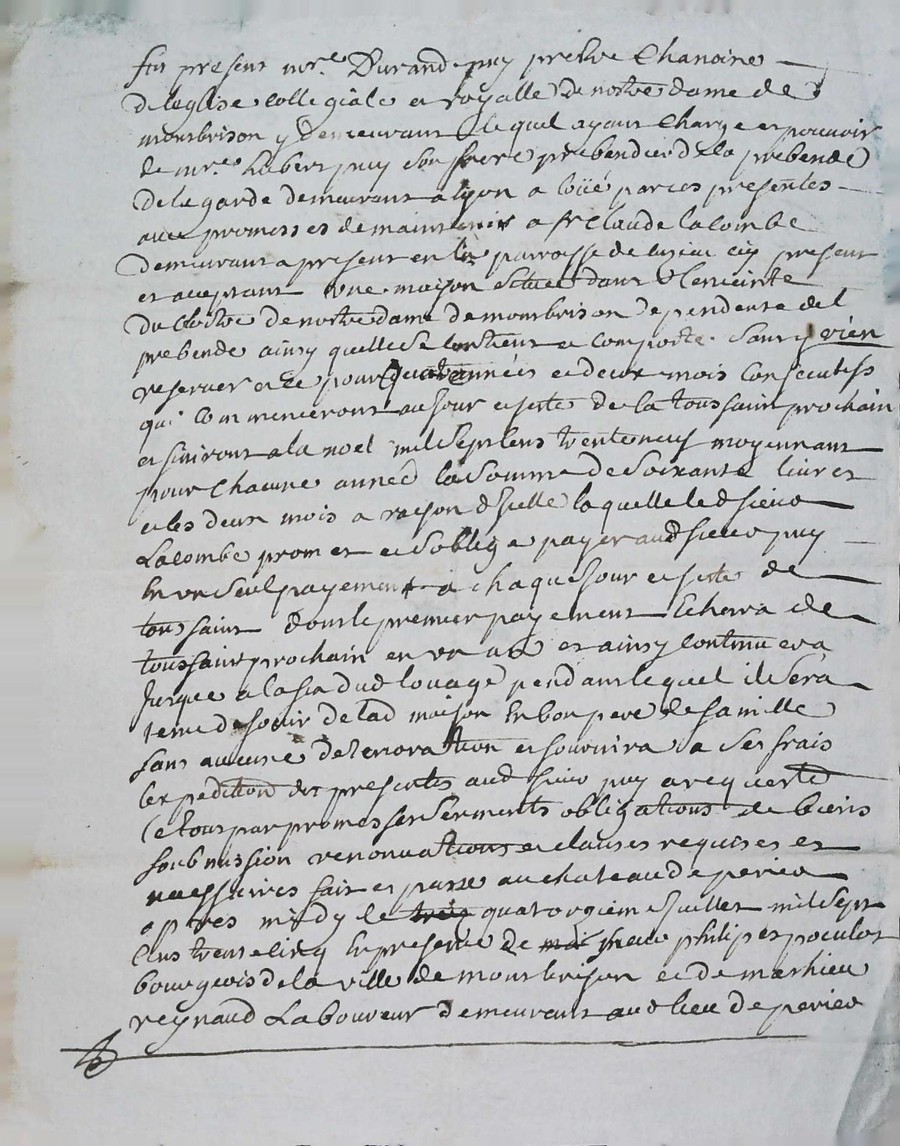 fut present mre Durand puy prebtre Chanoine
de leglise collegiale et royalle de nostre dame de
montbrison y demeurant lequel ayant Charge et pouvoir
de mre hubert puy son frere prebendier de la prebende
de la garde demeurant a lyon a loüé par ces presentes
avec promesses de maintenir a sr Claude lacombe
demeurant a present en la parroisse de cy present
et acceptant une maison scituée dans Lenceinte
du Cloitre de nostre dame de montbrison dependente de lad
prebende ainsy quelle se contient et comporte sans y rien
reserver et ce pour quatre années et deux mois consecutifs
qui commenceront au jour et feste de la toussaint prochain
et finiront a la noel mil sept cens trente neuf moyennant
pour Chacune année la somme de soixante livres
et les deux mois a raison dicelle laquelle led sieur
Lacombe promet et soblige payer aud sieur puy
en un seul payement a chaque jour et feste de
toussaint dont le premier payement Echerra de
toussaint prochain en un an et ainsy continuera
jusque a la fin dud louage pendant lequel il sera
tenu de jouir de lad maison en bon pere de famille
sans aucune deterioration et fournira a ses frais
lexpedition des presentes aud sieur puy a requeste
Ce tout par promesses serments obligations de biens
soubmission renonciations et clauses requises et
necessaires fait et passé au chateau de perieu
apres midy le quatorzieme juillet mil sept
Cens trente cinq en presence de philipes poculot
bourgeois de la ville de montbrison et de mathieu
reynaud Laboureur demeurant aud lieu de perieu